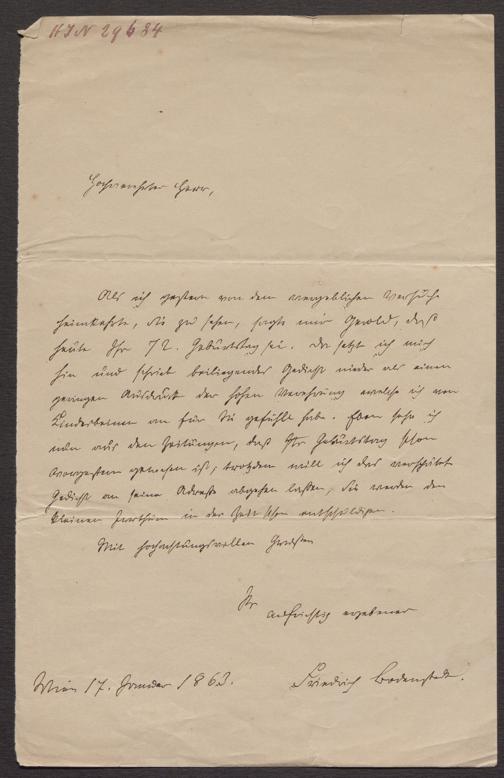 HIN 29684
Hochverehrter Herr,
Als ich gestern von dem vergeblichen Versuche
heimkehrte, Sie zu sehen, sagte mir Gerold, daß
heute Ihr 72. Geburtstag sei. Da setzte ich mich
hin und schrieb beiliegendes Gedicht nieder als einen
geringen Ausdruck der hohen Verehrung welche ich von
Kindesbeinen an für Sie gefühlt habe. Eben sehe ich
nun aus den Zeitungen, daß Ihr Geburtstag schon
vorgestern gewesen ist, trotzdem will ich das verspätete
Gedicht an seine Adresse abgehen lassen, Sie werden den
kleinen Irrthum in der Zeit schon entschuldigen.
Mit hochachtungsvollen Grüßen
Ihr
aufrichtig ergebener
Wien 17. Januar 1863. Friedrich Bodenstedt.